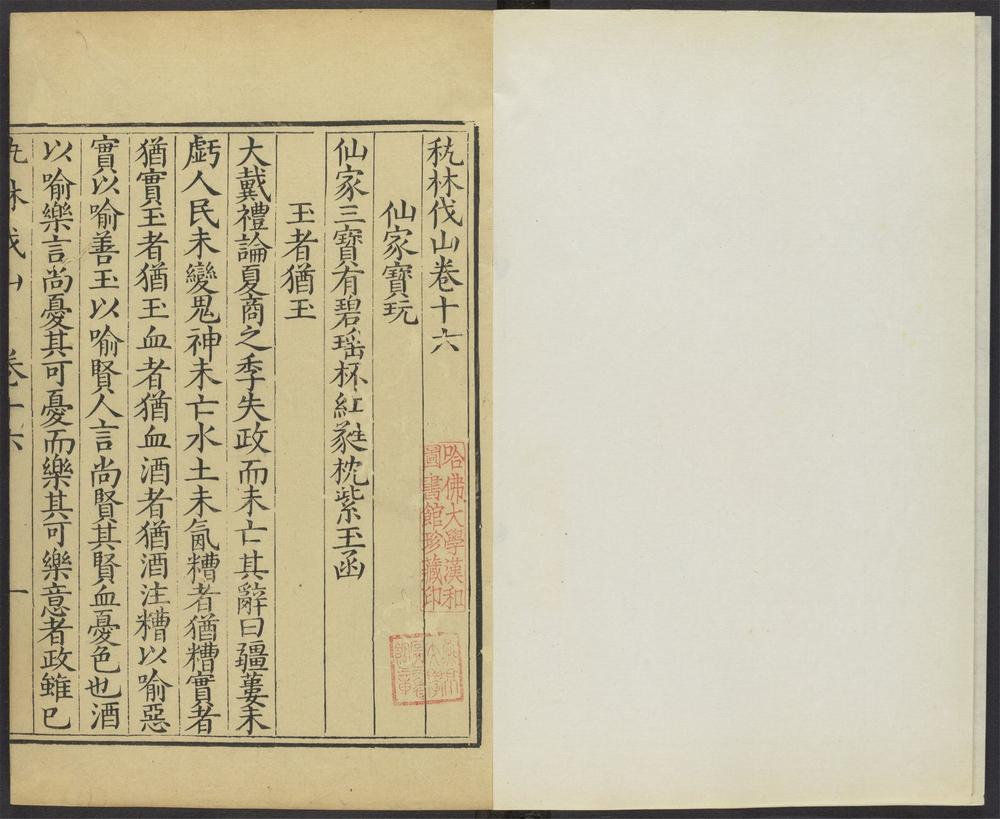 秇林伐山卷十六
仙家寶玩
仙家三寶有碧瑶杯紅蕤枕紫玉函
玉者猶玉
大戴禮論夏商之季失政而未亡其辭曰疆蔞未
虧人民未變鬼神未亡水土未氤糟者猶糟實者
猶實玉者猶玉血者猶血酒者猶酒注糟以喻惡
實以喻善玉以喻賢人言尚賢其賢血憂色也酒
以喻樂言尚憂其可憂而樂其可樂意者政雖已
秇林伐山 卷十六 一
哈佛大學漢和
圖書館珍藏印